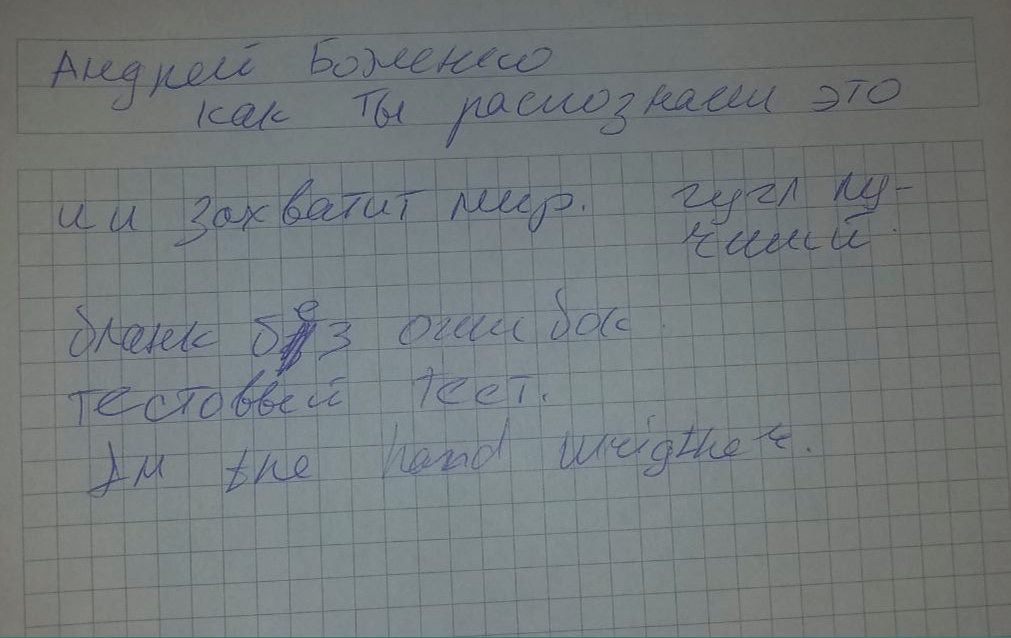 Андрей Боженко
как ты распознаеш это
ии захватит мир. гугл лу-
чший
бланк без ошибок.
тестоввый тест.
Im the hand wrigther.